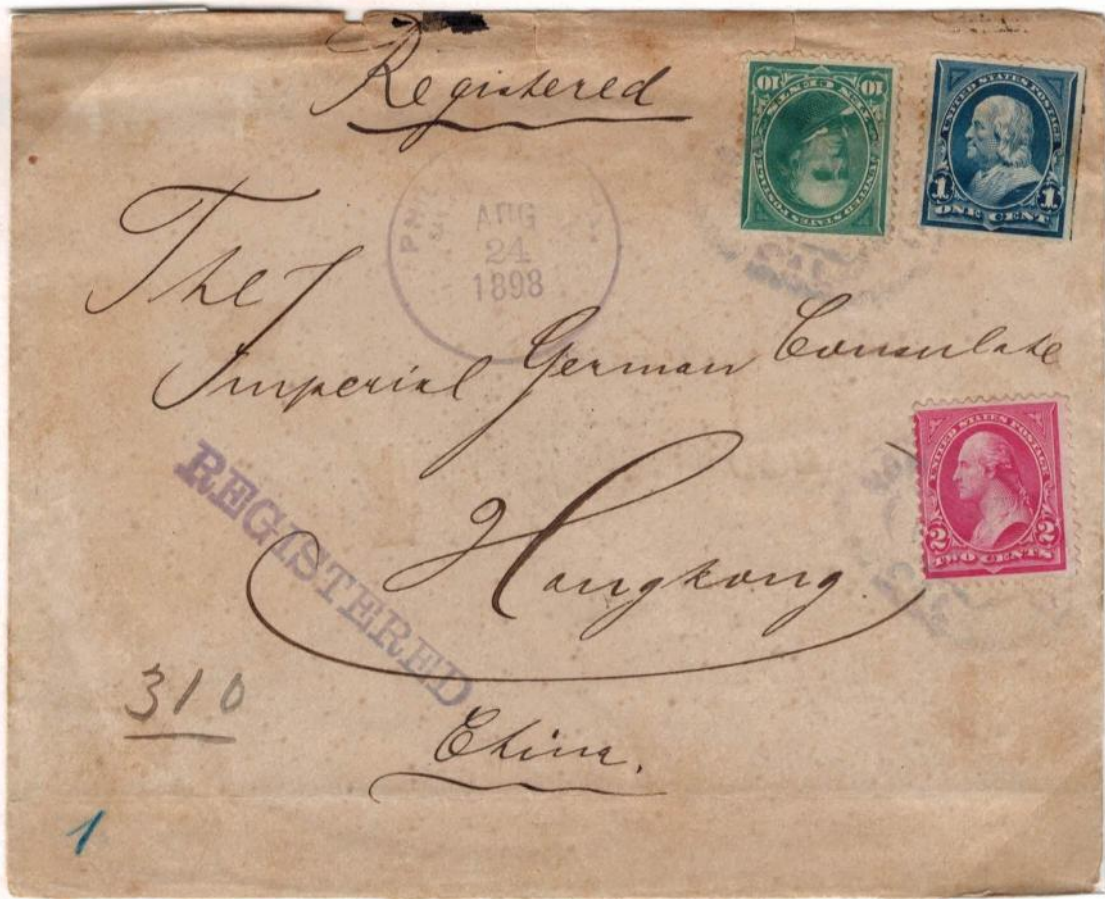 Registered
10 10
TEN CENTS
UNITED STATES POSTAGE
UNITED STATES POSTAGE
1 1
ONE CENT
AUG
24
1898
The
Imperial German Consulate
UNITED STATES POSTAGE
2 2
TWO CENTS
Hongkong
REGISTERED
310
China.
1